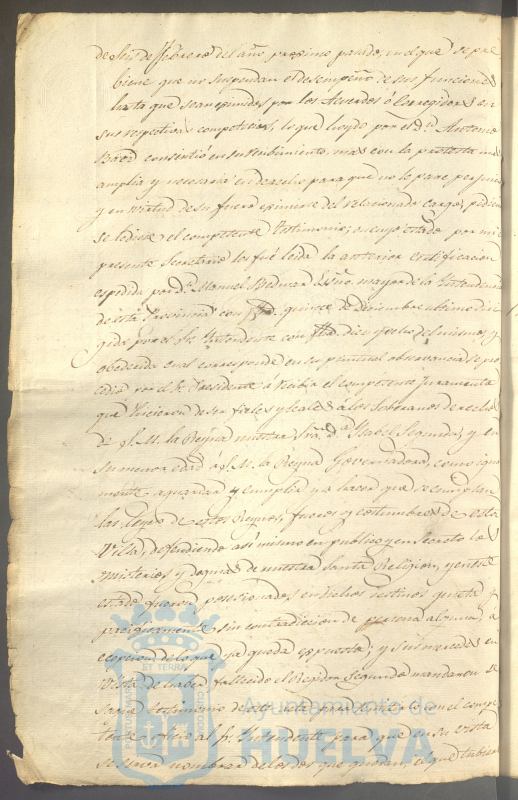 de seis de Febrero del año proximo pasado, en el que se pre
biene que no suspendan el desempeño de sus funciones
hasta que sean reunidos por los Acuerdos ó Corregidores en
sus respectivas competencias, lo que hoydo por el Dn. Antonio
consintió en su recibimiento, mas con la protesta mas
amplia y necesaria en derecho para que no le pare perjuicio
y en virtud de su fuero eximirse del relacionado cargo, pidiendo
se le diese el competente testimonio; en cuyo estado por mi el
presente Secretario les fué leida la anterior certificacion
espedida por Dn. Manuel Bedmar Esno. mayor de la Yntendencia
de esta Provincia con fha. quince de Diciembre ultimo diri
gida por el Sr. Yntendente con fha. diez y ocho del mismo, y
obedecida cual corresponde en su puntual observancia se pro
cedió por el Sr. Presidente á recibir el competente Juramento
que hicieron de ser fieles y leales á los Soberanos
á S. M. la Reyna nuestra Sra. Da. Ysabel Segunda, y en
su menor edad á S. M. la Reyna Governadora, como igual
mente aguardar y cumplir y á hacer que se cumplan
las leyes de estos Reynos, fueros y costumbres de esta
Villa, defendiendo asi mismo en publico y en Secreto los
Misterios y dogmas de nuestra Santa Religion, y en este
estado fueron posesionados en dichos destinos quieta y
pacificamente sin contradicion de persona alguna, á
ecepcion de lo que ya queda espuesto; y sus mercedes en
vista de haber fallecido el Regidor Segundo mandaron se
saque testimonio de este acto para dirijirlo con el compe
tente oficio al Sr. Yntendente para que en su vista
se sirva nombrar de los dos que quedan, el que tubiere
ET TERRA
Ayuntamiento de
HUELVA